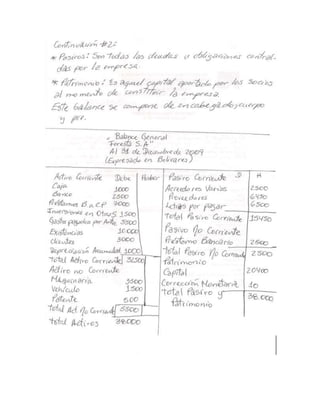 Continuación #2:
* Pasivos: Son todas las deudas u obligaciones contraí-
das por la empresa.
* Patrimonio: Es aquel capital aportado por los socios
al momento de constituir la empresa
Este balance se compone de encabezado, cuerpo
y pie.
Balance General
"Foresta S.A"
Al 31 de Diciembre de 2009
(Expresado en Bolívares)
Activo Corriente Debe Haber Pasivo Corriente D H
Caja 1000 Acreedores Varios 2500
Banco 1500 Proveedores 6450
2000 Letras por pagar 6500
Inversiones en Otras 1500 Total Pasivo Corriente 15450
Gastos pagados por Ante 3500 Pasivo No Corriente
Existencias 10.000 Préstamo Bancario 2500
Clientes 3000 Total Pasivo No Corriente 2500
Depreciación Acumulad 1000 Patrimonio
Total Activo Corriente Capital 20400
Activo no Corriente Corrección Monetaria 10
Maquinaria 3500 Total Pasivo y 38.000
Vehículo 1500 Patrimonio
Patente 500
Total Act No Corriente 5500
Total Activos 38.000